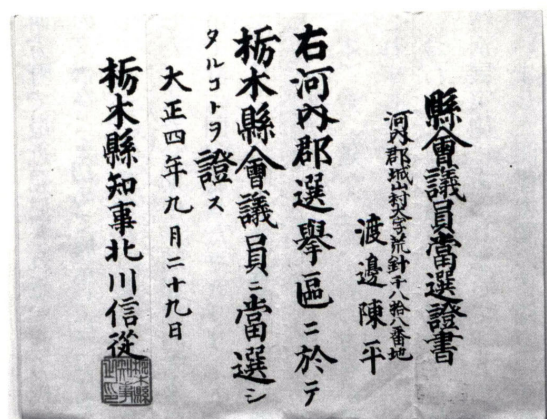 縣會議員當選證書
河內郡城山村大字荒針千八拾八番地
渡邊陳平
右河內郡選擧區ニ於テ
栃木縣會議員ニ當選シ
タルコトヲ證ス
大正四年九月二十九日
栃木縣知事北川信從
栃木縣知事之印